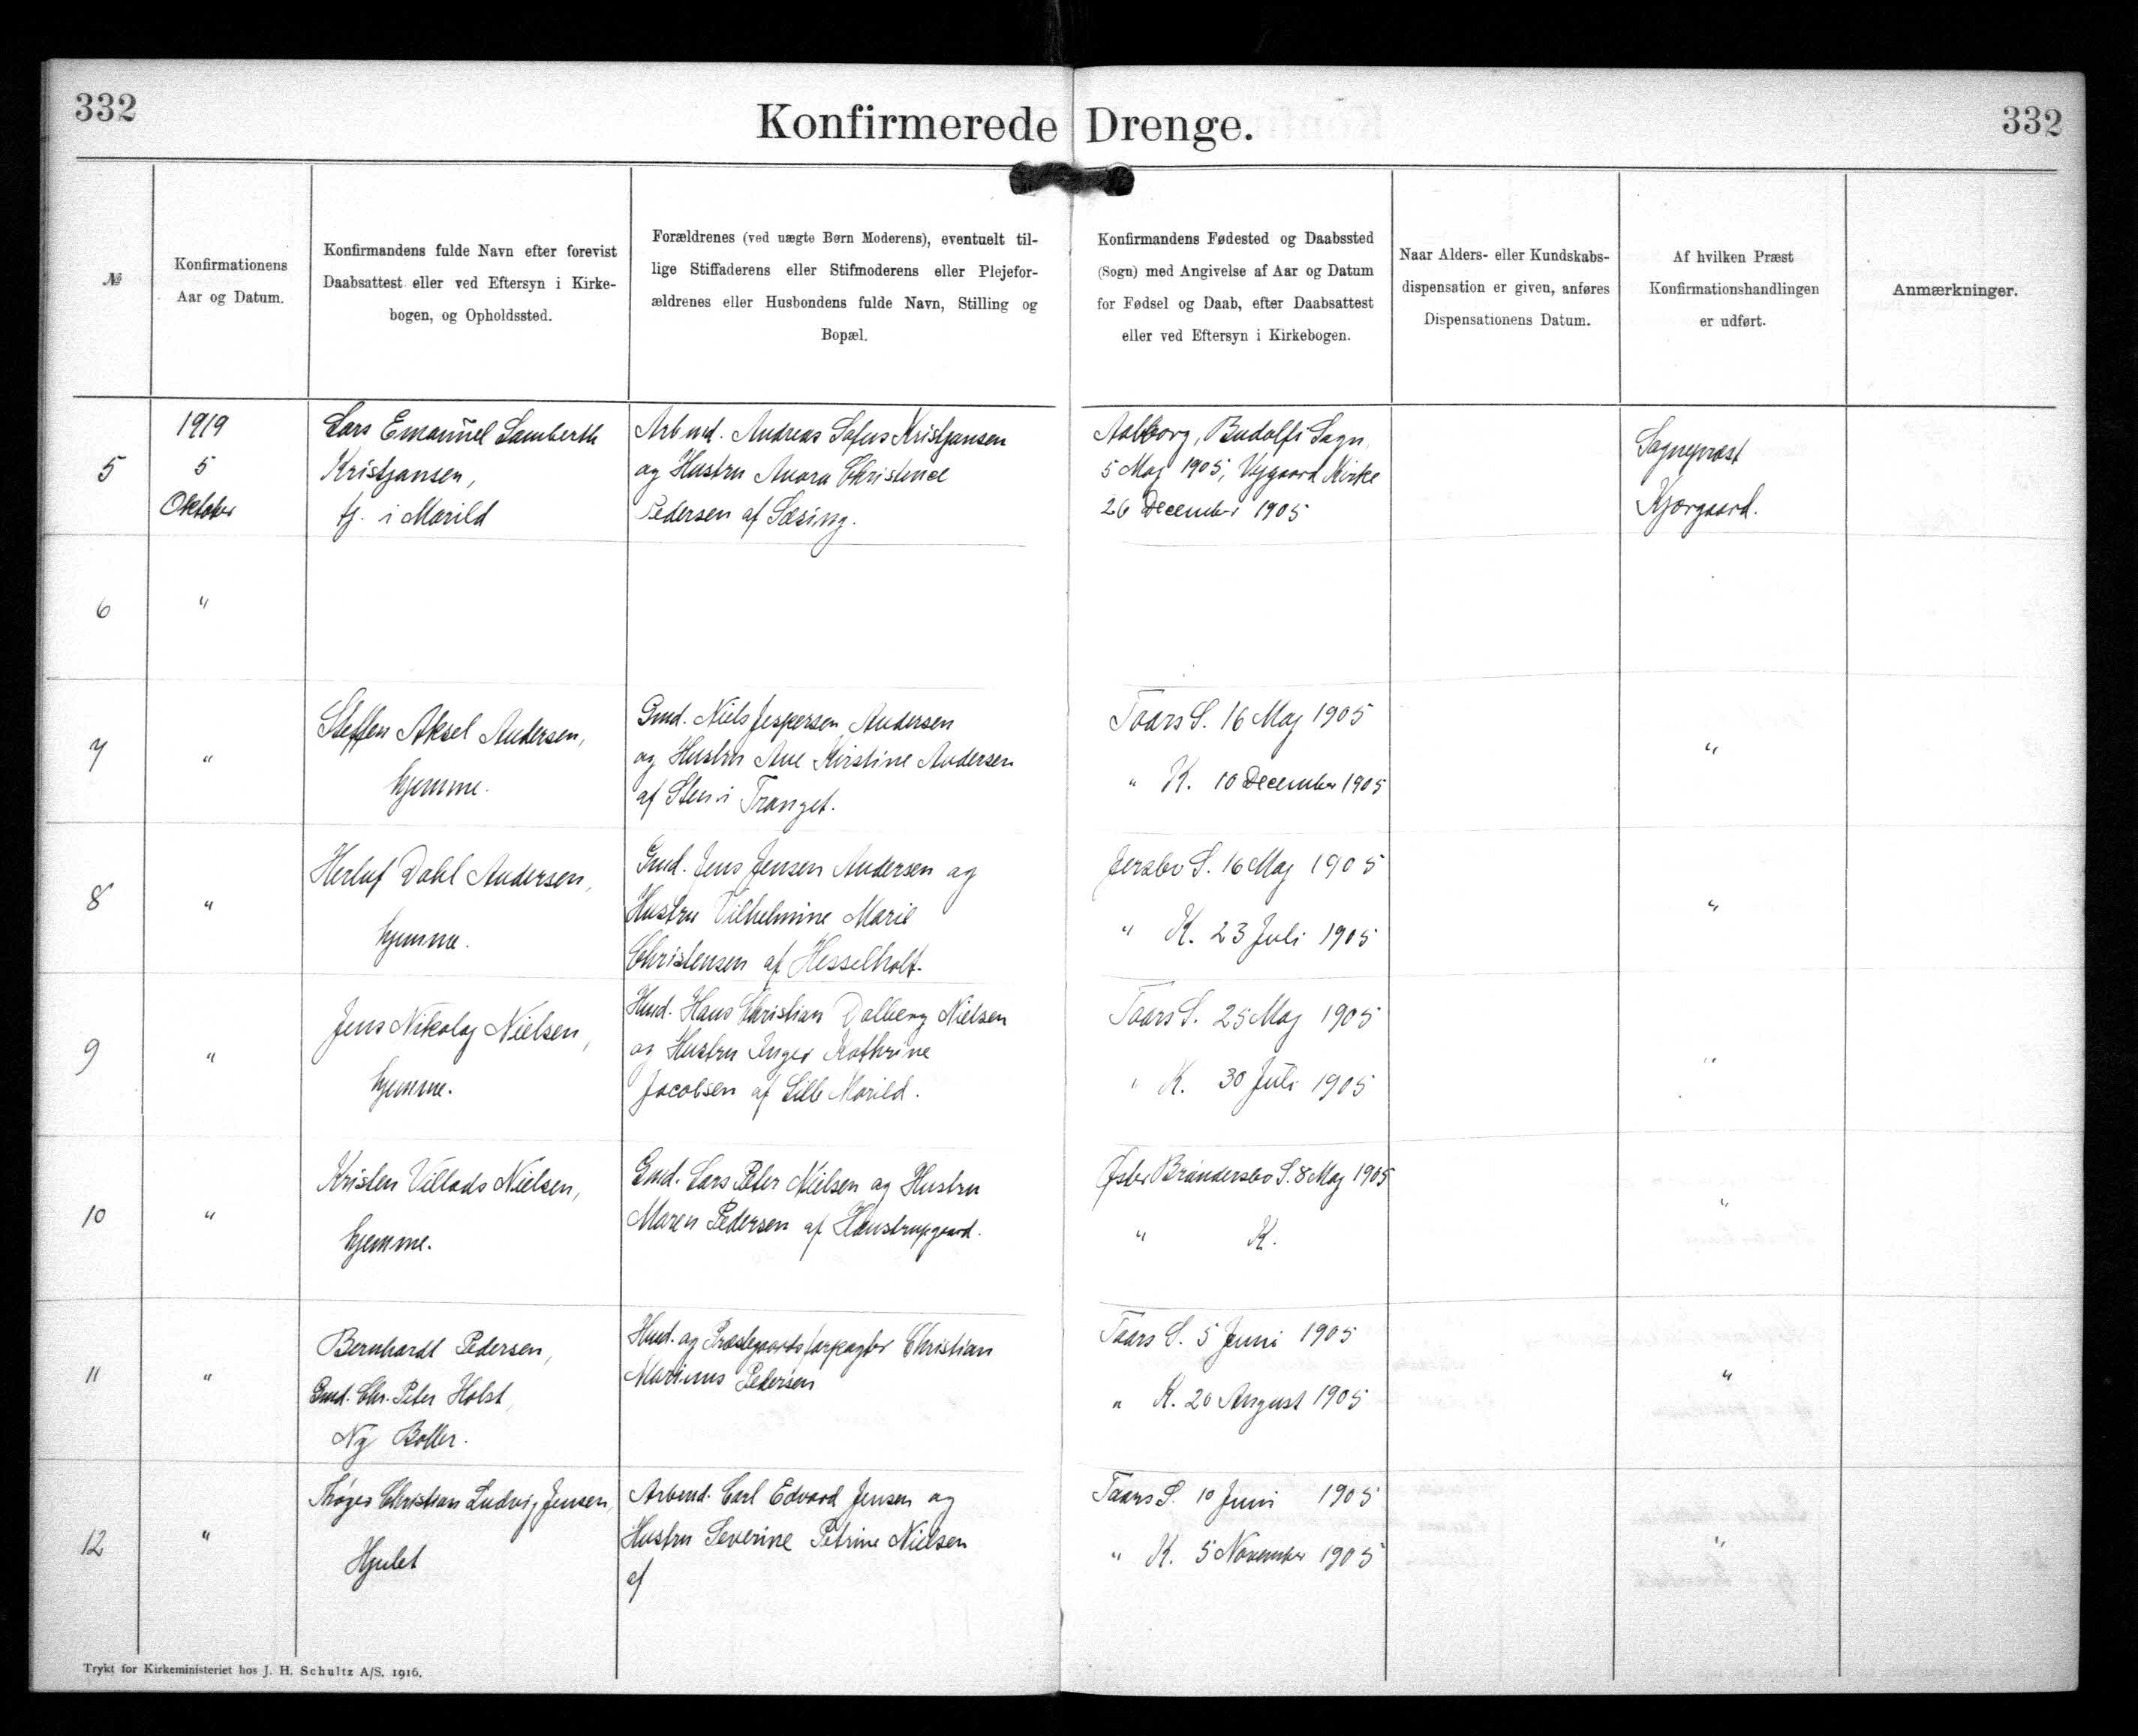 332
Konfirmerede Drenge.
332
№
Konfirmationens
Aar og Datum.
Konfirmandens fulde Navn efter forevist
Daabsattest eller ved Eftersyn i Kirke-
bogen, og Opholdssted.
Forældrenes (ved uægte Børn Moderens), eventuelt til-
lige Stiffaderens eller Stifmoderens eller Plejefor-
ældrenes eller Husbondens fulde Navn, Stilling og
Bopæl.
Konfirmandens Fødested og Daabssted
(Sogn) med Angivelse af Aar og Datum
for Fødsel og Daab, efter Daabsattest
eller ved Eftersyn i Kirkebogen.
Naar Alders- eller Kundskabs-
dispensation er given, anføres
Dispensationens Datum.
Af hvilken Præst
Konfirmationshandlingen
er udført.
Anmærkninger.
5
1919
5
Oktober
Lars Emanuel Lamberth
Kristjansen,
tj. i Marild
Arbmd. Andreas Sofus Kristjansen
og Hustru Christine
Pedersen af Sæsing.
Aalborg, Budolfi Sogn,
5 Maj 1905, Vejgaard Kirke
26 December 1905
Sognepræst
Kjærgaard.
6
"
7
"
Steffen Aksel Andersen,
hjemme.
Gmd. Niels Jespersen Andersen
og Hustru Ane Kirstine Andersen
af Sten i Tranget.
Taars S. 16 Maj 1905
" K. 10 December 1905
"
8
"
Herluf Dahl Andersen,
hjemme.
Gmd. Jens Jensen Andersen og
Hustru Vilhelmine Marie
Christensen af Hesselholt.
Jerslev S. 16 Maj 1905
" K. 23 Juli 1905
"
9
"
Jens Nikolaj Nielsen,
hjemme.
Hmd. Hans Christian Dalberg Nielsen
og Hustru Inger Kathrine
Jacobsen af Lille Marild.
Taars S. 25 Maj 1905
" K. 30 Juli 1905
"
10
"
Kristen Villads Nielsen,
hjemme.
Gmd. Lars Peter Nielsen og Hustru
Maren Pedersen af Haustrupgaard.
Øster Brønderslev S. 8 Maj 1905
" K.
"
11
"
Bernhardt Pedersen,
Gmd. Chr. Peter Holst,
Ny Boller.
Hmd. og Præstegaardsforpagter Christian
Marinus Pedersen
Taars S. 5 Juni 1905
" K. 20 August 1905
"
12
"
Thøger Christian Ludvig Jensen,
Hjulet
Arbmd. Carl Edvard Jensen og
Hustru Severine Petrine Nielsen
af
Taars S. 10 Juni 1905
" K. 5 November 1905
"
Trykt for Kirkeministeriet hos J. H. Schultz A/S. 1916.